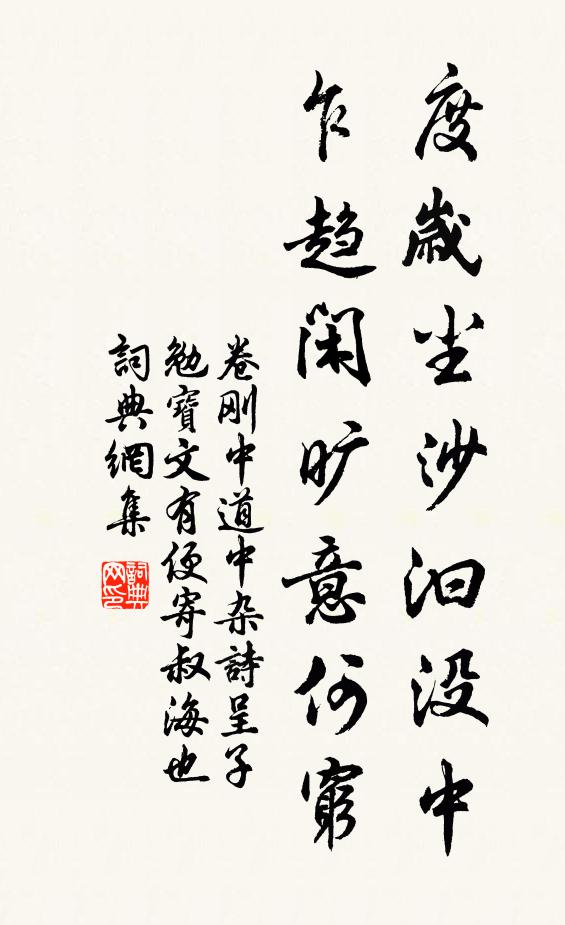 度歲尘沙汩没中
乍趋闲旷意何窮
卷刚中道中杂詩呈子
勉寶文有便寄叔海也
詞典網集
詞典网印